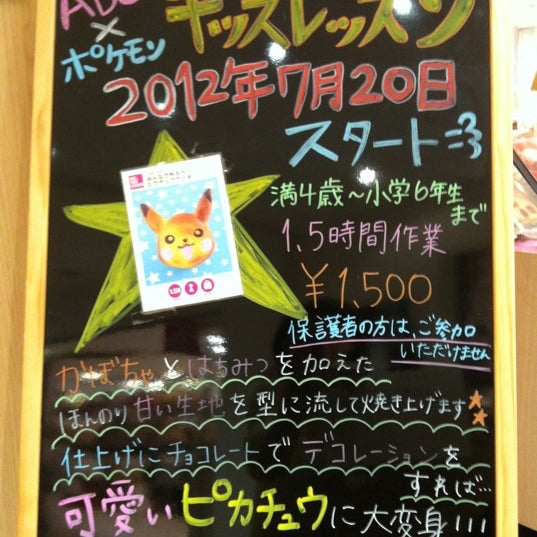 ABC
×
ポケモン
キッズレッスン
2012年7月20日
スタート
満4歳〜小学6年生
まで
1.5時間作業
¥1,500
保護者の方は、ご参加
いただけません
かぼちゃとはちみつを加えた
ほんのり甘い生地を型に流して焼き上げます★★
仕上げにチョコレートでデコレーションを
すれば…
可愛いピカチュウに大変身!!!